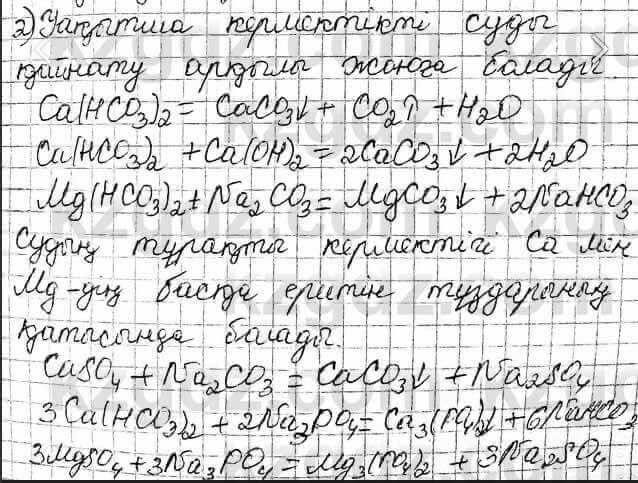 2) Уақытша кермектікті суды
қайнату арқылы жоюға болады.
Ca(HCO3)2 = CaCO3↓ + CO2↑ + H2O
Ca(HCO3)2 + Ca(OH)2 = 2CaCO3↓ + 2H2O
Mg(HCO3)2 + Na2CO3 = MgCO3↓ + 2NaHCO3
Судың тұрақты кермектігі Ca мен
Mg-дың басқа еритін тұздарының
қатысында болады.
CaSO4 + Na2CO3 = CaCO3↓ + Na2SO4
3Ca(HCO3)2 + 2Na3PO4 = Ca3(PO4)2↓ + 6NaHCO3
3MgSO4 + 3Na3PO4 = Mg3(PO4)2 + 3Na2SO4